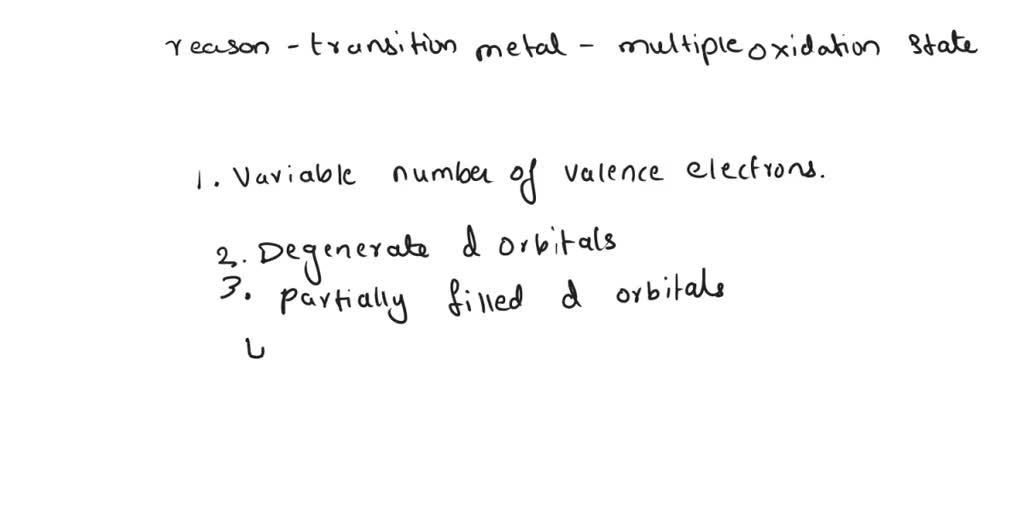 reason - transition metal - multiple oxidation state
1. Variable number of valence electrons.
2. Degenerate d orbitals
3. partially filled d orbitals